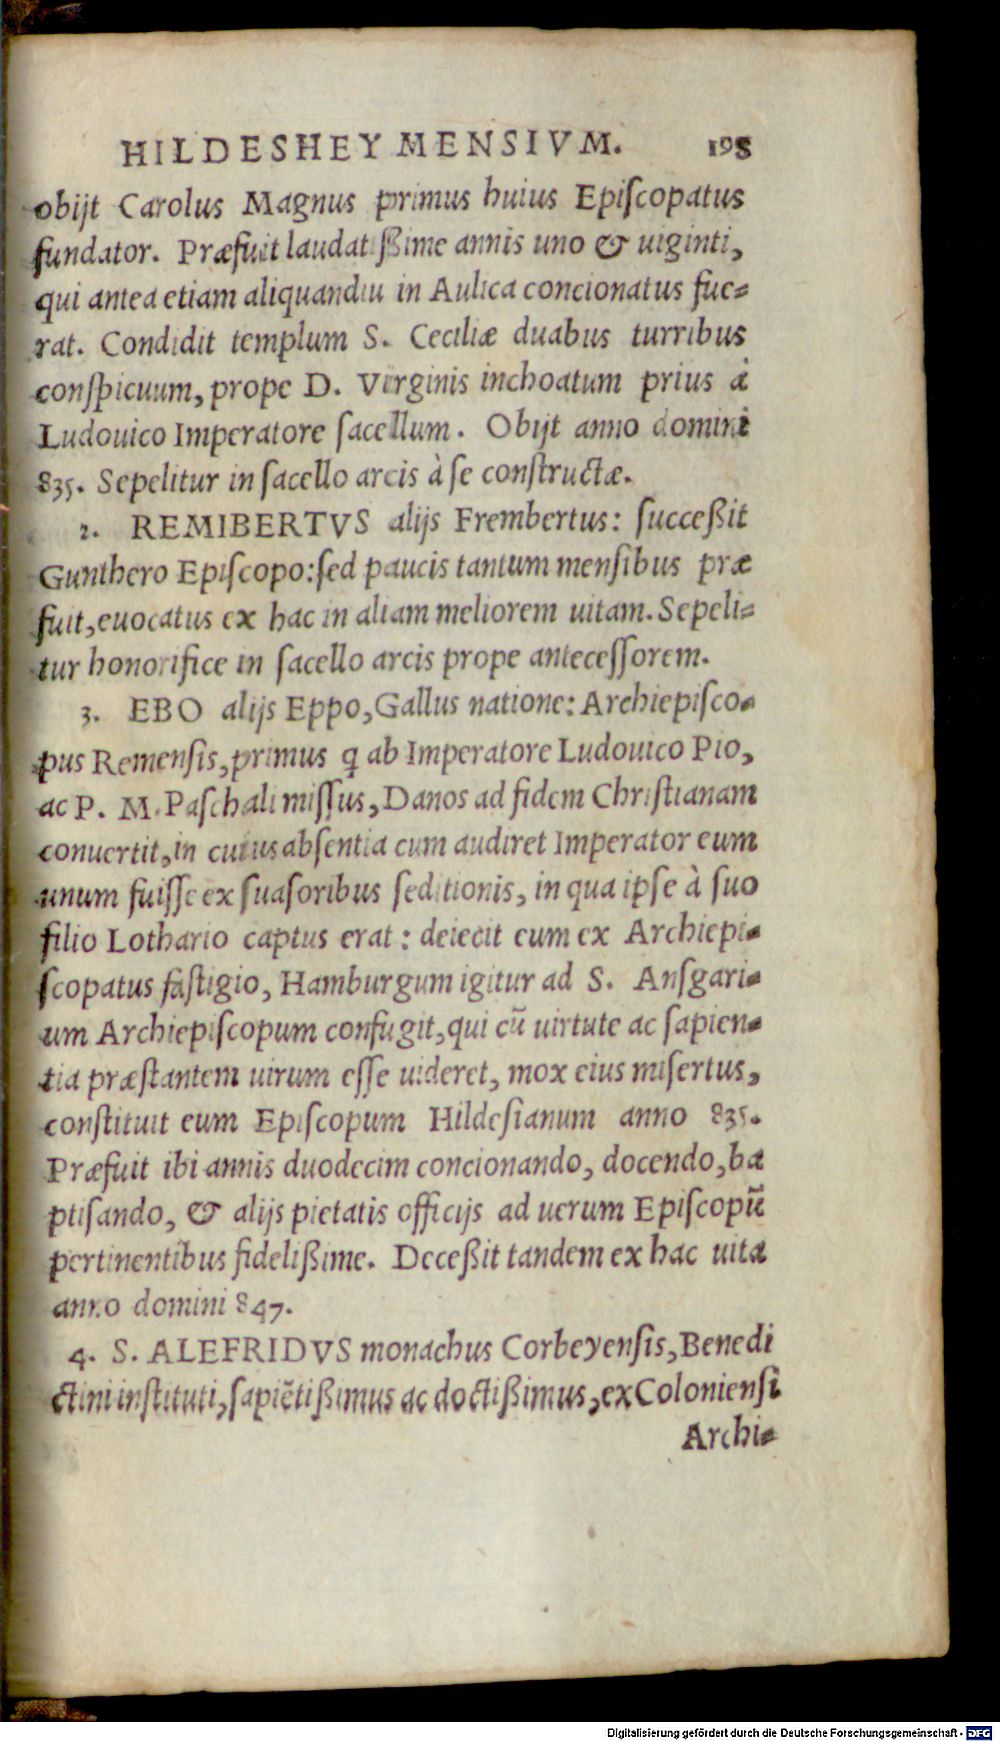 HILDESHEYMENSIVM. 198
obijt Carolus Magnus primus huius Epiſcopatus
fundator. Præfuit laudatißime annis uno & uiginti,
qui antea etiam aliquandiu in Aulica concionatus fue-
rat. Condidit templum S. Ceciliæ duabus turribus
conſpicuum, prope D. Virginis inchoatum prius à
Ludouico Imperatore ſacellum. Obijt anno domini
835. Sepelitur in ſacello arcis à ſe conſtructæ.
2. REMIBERTVS alijs Frembertus: ſucceßit
Gunthero Epiſcopo: ſed paucis tantum menſibus præ
fuit, euocatus ex hac in aliam meliorem uitam. Sepeli-
tur honorifice in ſacello arcis prope anteceſſorem.
3. EBO alijs Eppo, Gallus natione: Archiepiſco-
pus Remenſis, primus q ab Imperatore Ludouico Pio,
ac P. M. Paſchali miſſus, Danos ad fidem Chriſtianam
conuertit, in cuius abſentia cum audiret Imperator eum
unum fuiſſe ex ſuaſoribus ſeditionis, in qua ipſe à ſuo
filio Lothario captus erat: deiecit eum ex Archiepi-
ſcopatus faſtigio, Hamburgum igitur ad S. Anſgari-
um Archiepiſcopum confugit, qui cũ uirtute ac ſapien-
tia præſtantem uirum eſſe uideret, mox eius miſertus,
conſtituit eum Epiſcopum Hildeſianum anno 835.
Præfuit ibi annis duodecim concionando, docendo, ba
ptiſando, & alijs pietatis officijs ad uerum Epiſcopũ
pertinentibus fidelißime. Deceßit tandem ex hac uita
anno domini 847.
4. S. ALEFRIDVS monachus Corbeyenſis, Benedi
ctini inſtituti, ſapiẽtißimus ac doctißimus, ex Colonienſi
Archi-
Digitalisierung gefördert durch die Deutsche Forschungsgemeinschaft - DFG